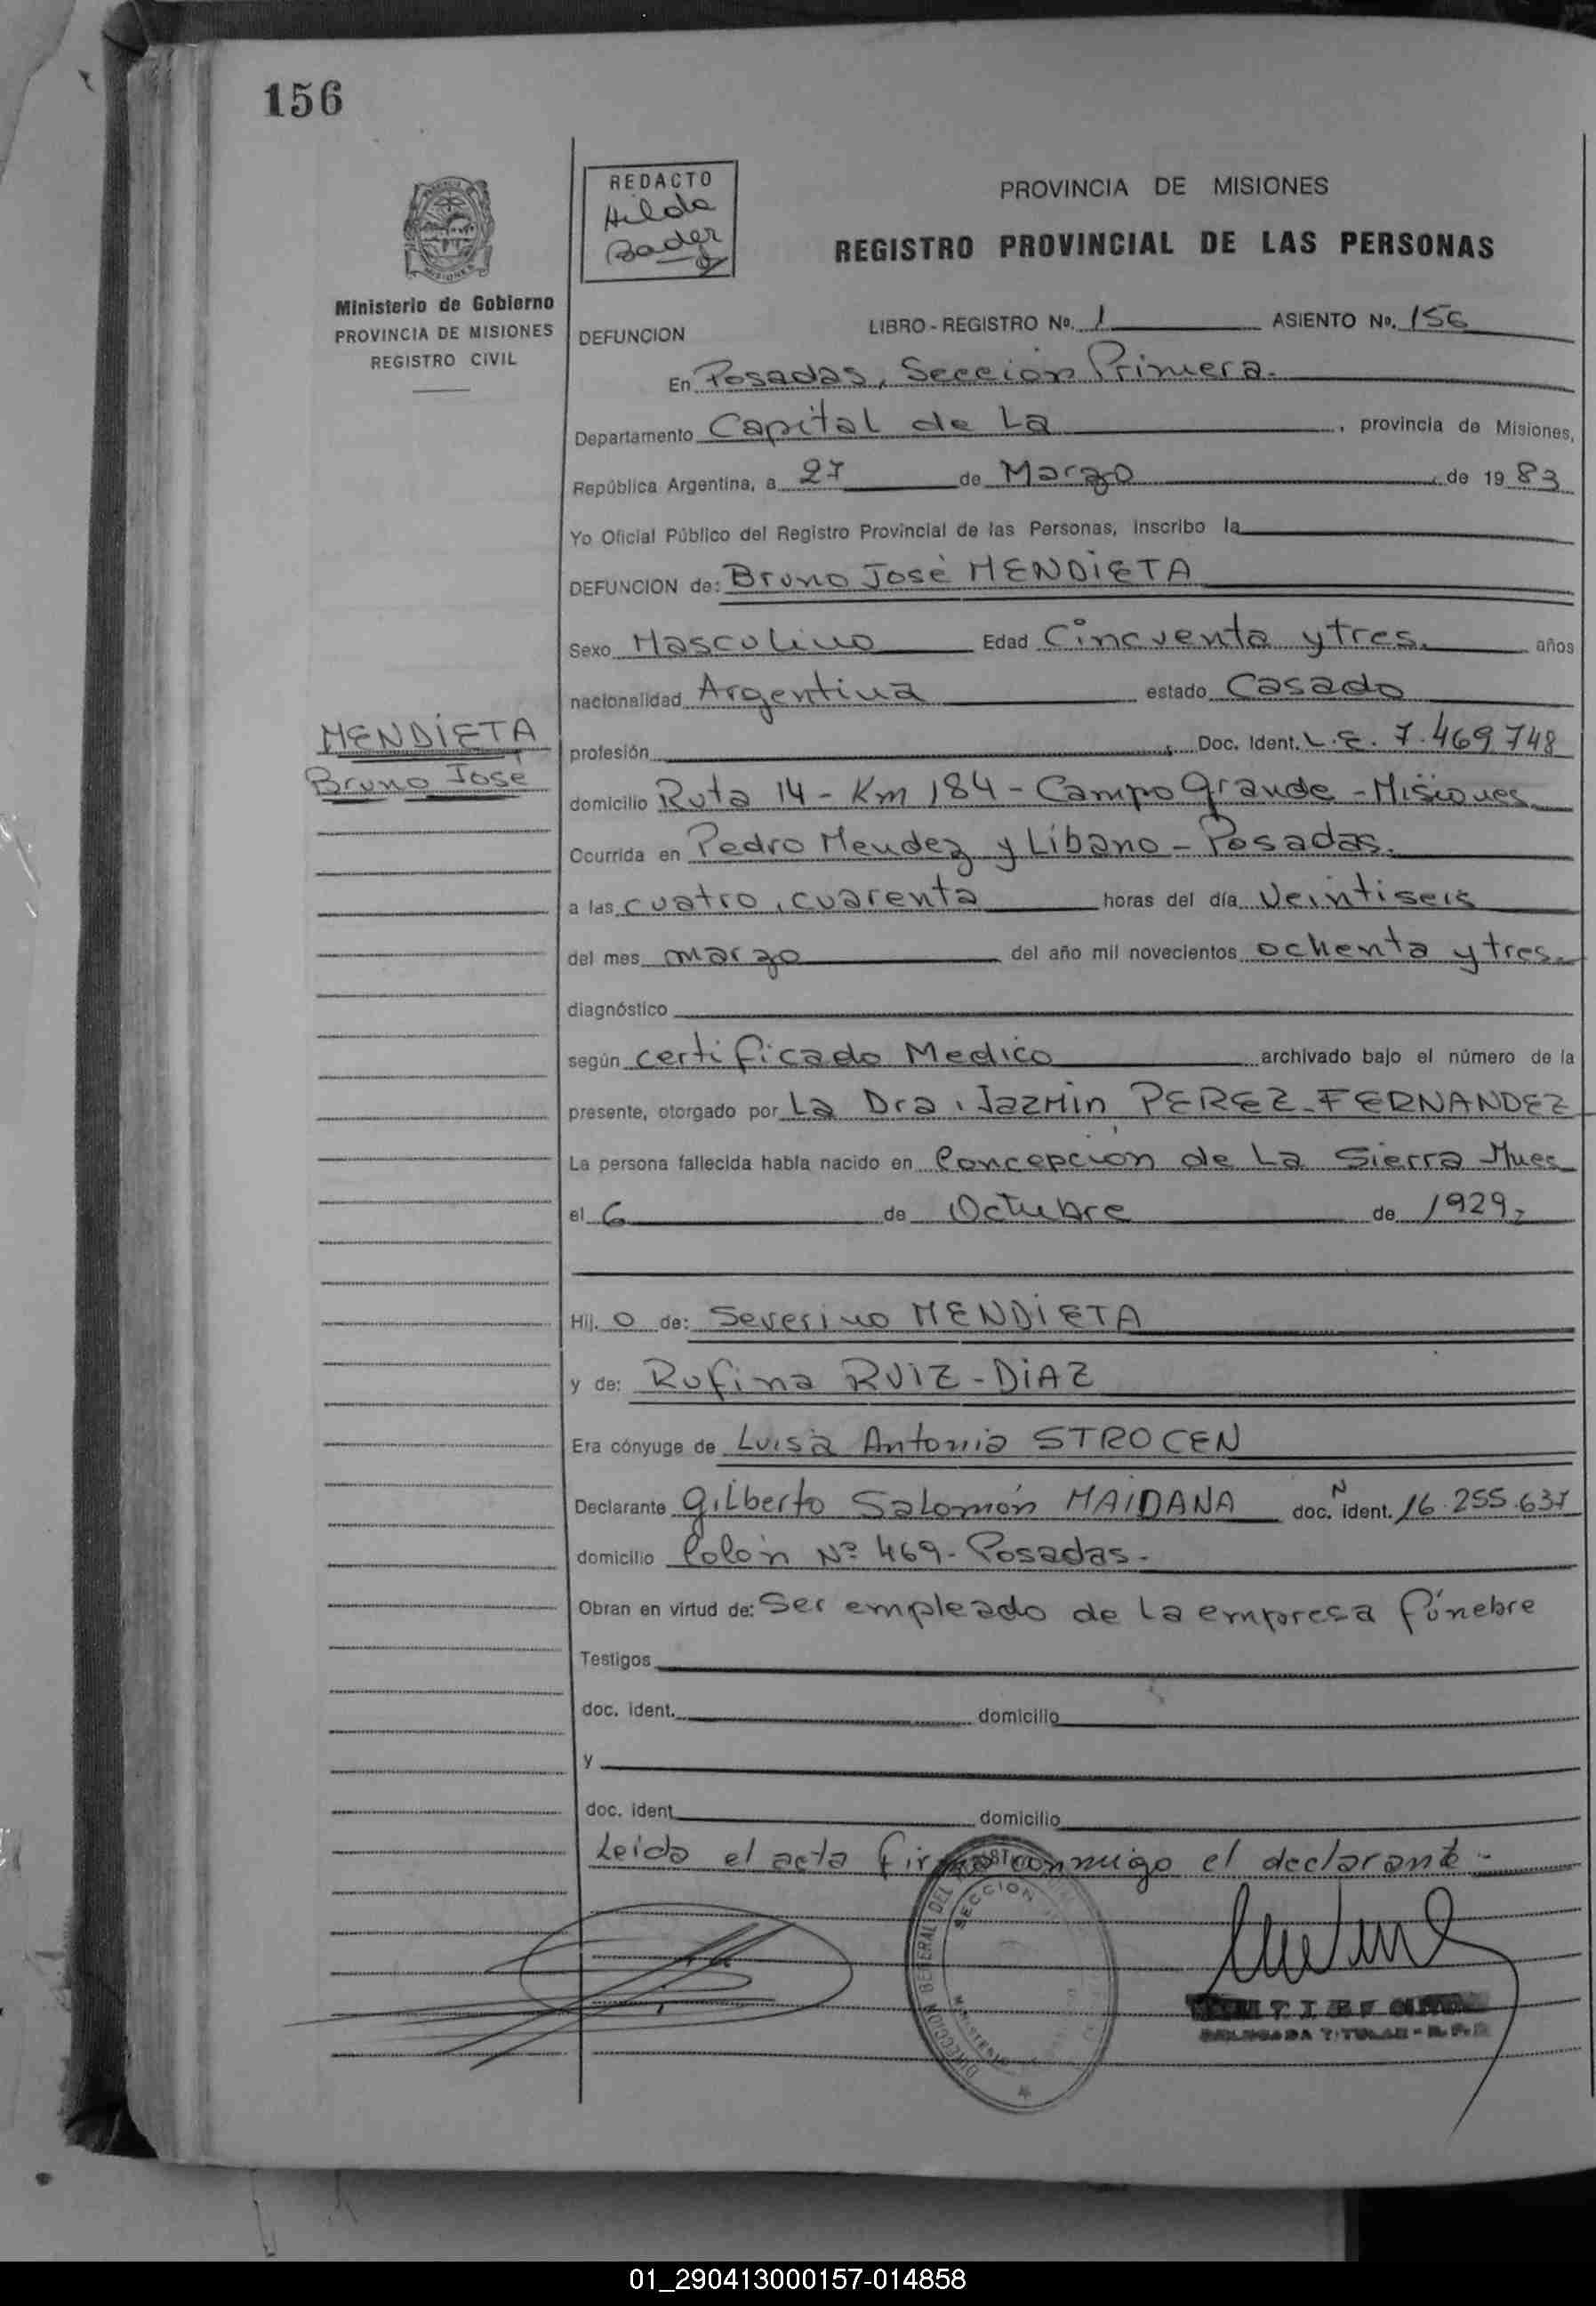 156
REDACTO
Hilda
Bader
Ministerio de Gobierno
PROVINCIA DE MISIONES
REGISTRO CIVIL
PROVINCIA DE MISIONES
REGISTRO PROVINCIAL DE LAS PERSONAS
DEFUNCION LIBRO - REGISTRO Nº. 1 ASIENTO Nº. 156
En Posadas, Sección Primera.
Departamento Capital de La , provincia de Misiones,
República Argentina, a 27 de Marzo de 19 83
Yo Oficial Público del Registro Provincial de las Personas, inscribo la
DEFUNCION de: Bruno José MENDIETA
Sexo Masculino Edad Cincuenta y tres. años
nacionalidad Argentina estado Casado
MENDIETA
Bruno José
profesión Doc. Ident. L.E. 7.469748
domicilio Ruta 14 - Km 184 - Campo Grande - Misiones
Ocurrida en Pedro Mendez y Líbano - Posadas.
a las cuatro, cuarenta horas del día Veintiseis
del mes marzo del año mil novecientos ochenta y tres.
diagnóstico
según certificado Medico archivado bajo el número de la
presente, otorgado por La Dra. Jazmin PEREZ-FERNANDEZ
La persona fallecida había nacido en Concepción de La Sierra Mnes
el 6 de Octubre de 1929
Hij. o de: Severino MENDIETA
y de: Rufina RUIZ-DIAZ
Era cónyuge de Luisa Antonia STROCEN
Declarante Gilberto Salomón MAIDANA doc. N ident. 16.255.637
domicilio Colón Nº 469 - Posadas -
Obran en virtud de: Ser empleado de la empresa fúnebre
Testigos
doc. ident. domicilio
y
doc. ident. domicilio
Leída el acta firma conmigo el declarante -
DIRECCION GENERAL DEL
SECCION
MINISTERIO
DELEGADA TITULAR - R.P.P.
01_290413000157-014858